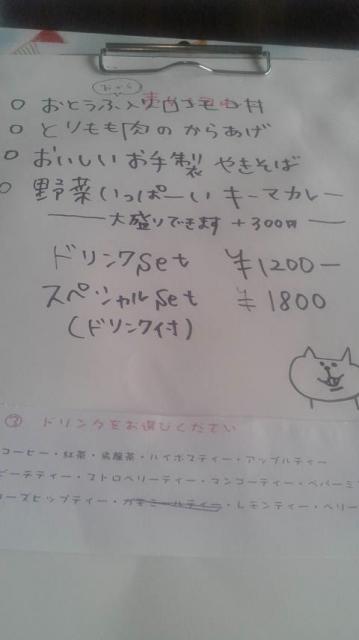 おから
おとうふ入
○ とりもも肉の からあげ
○ おいしい お手製 やきそば
○ 野菜いっぱーい キーマカレー
大盛りできます +300円
ドリンクSet ¥1200-
スペシャルSet ¥1800
(ドリンク付)
② ドリンクをお選びください
コーヒー・紅茶・烏龍茶・ハイボスティー・アップルティー
ピーチティー・ストロベリーティー・マンゴーティー・ペパーミ
ローズヒップティー・カモミールティー・レモンティー・ベリー